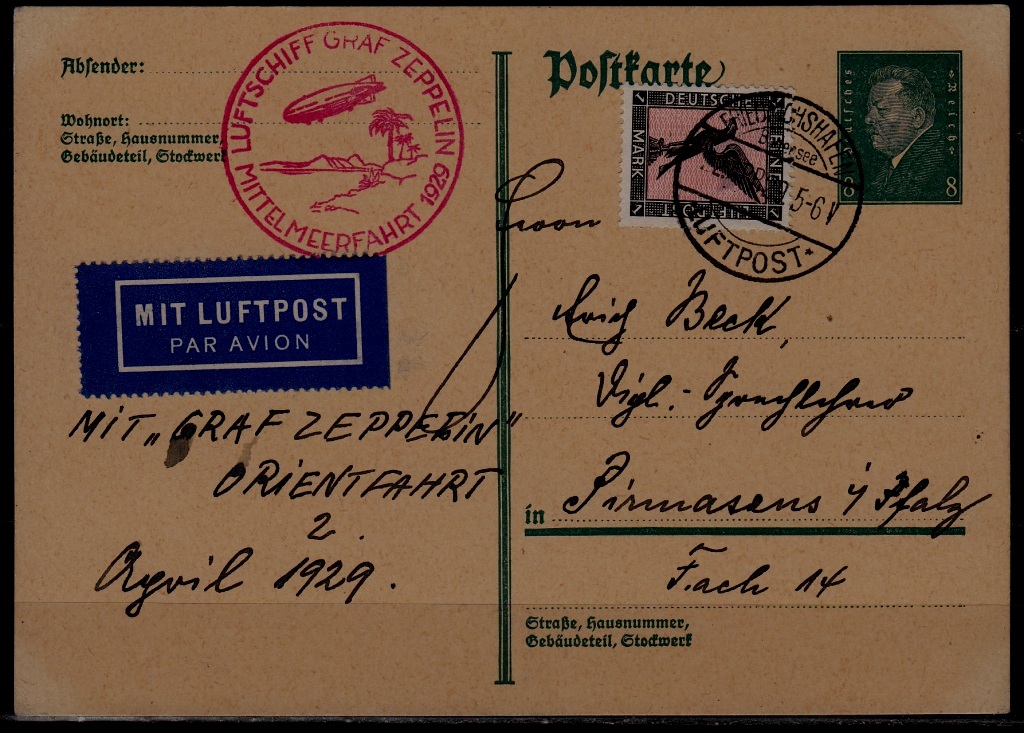 Absender:
Wohnort:
Straße, Hausnummer,
Gebäudeteil, Stockwerk
LUFTSCHIFF GRAF ZEPPELIN
MITTELMEERFAHRT 1929
MIT LUFTPOST
PAR AVION
MIT „GRAF ZEPPELIN"
ORIENTFAHRT
2.
April 1929.
Postkarte
DEUTSCHE
EINE
MARK
1
1
1
FRIEDRICHSHAFEN
5-6 V
LUFTPOST
Deutsches
Reich
8
Herrn
Erich Beck,
Dipl.-Sprachlehrer
in Pirmasens i/Pfalz
Fach 14
Straße, Hausnummer,
Gebäudeteil, Stockwerk